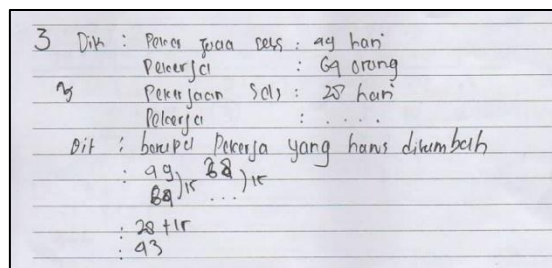 3 Dik : Pekerjaan sels : 49 hari
Pekerja : 64 orang
Pekerjaan Sels : 28 hari
Pekerja : ....
Dit : berapa Pekerja yang harus ditambah
: 49 )15 28 )15
64 ...
: 28 + 15
: 43